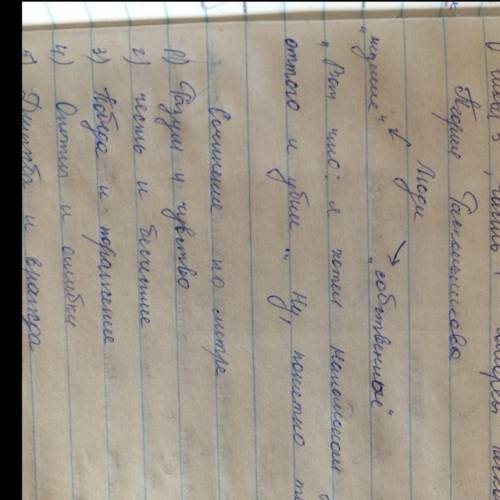 часть
Теория Раскольникова
Люди
„низшие“ „собственные“
„Вот что: я хотел Наполеоном
оттого и убил... Ну, понятно
Сочинение по литре
1) Разум и чувство
2) Честь и бесчестие
3) Победа и поражение
4) Опыт и ошибки
5) Дружба и вражда